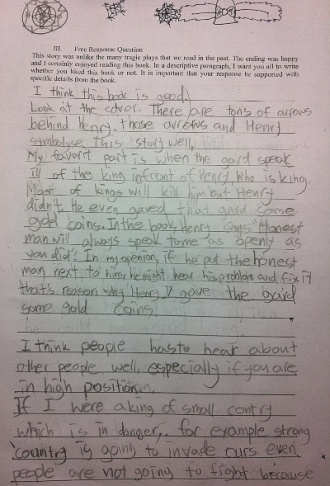 III. Free Response Question
This story was unlike the many tragic plays that we read in the past. The ending was happy
and I certainly enjoyed reading this book. In a descriptive paragraph, I want you all to write
whether you liked this book or not. It is important that your response be supported with
specific details from the book.
I think this book is good.
Look at the cover. There are tons of arrows
behind Henry. Those arrows and Henry
symbolyse this story well.
My favorit part is when the gard speak
ill of the king infront of Henry who is king.
Most of kings will kill him but Henry
didn't. He even gaved that gard some
gold coins. In the book, Henry says "Honest
man will always speak to me as openly as
you did". In my opinion, if he put the honest
man next to him, he might hear his problem and fix it
that's reason why Henry V gave the gard
some gold coins!
I think people hasto hear about
other people well, especially if you are
in high position.
If I were a king of small contry
which is in danger, for example strong
country is going to invade ours even
people are not going to fight because